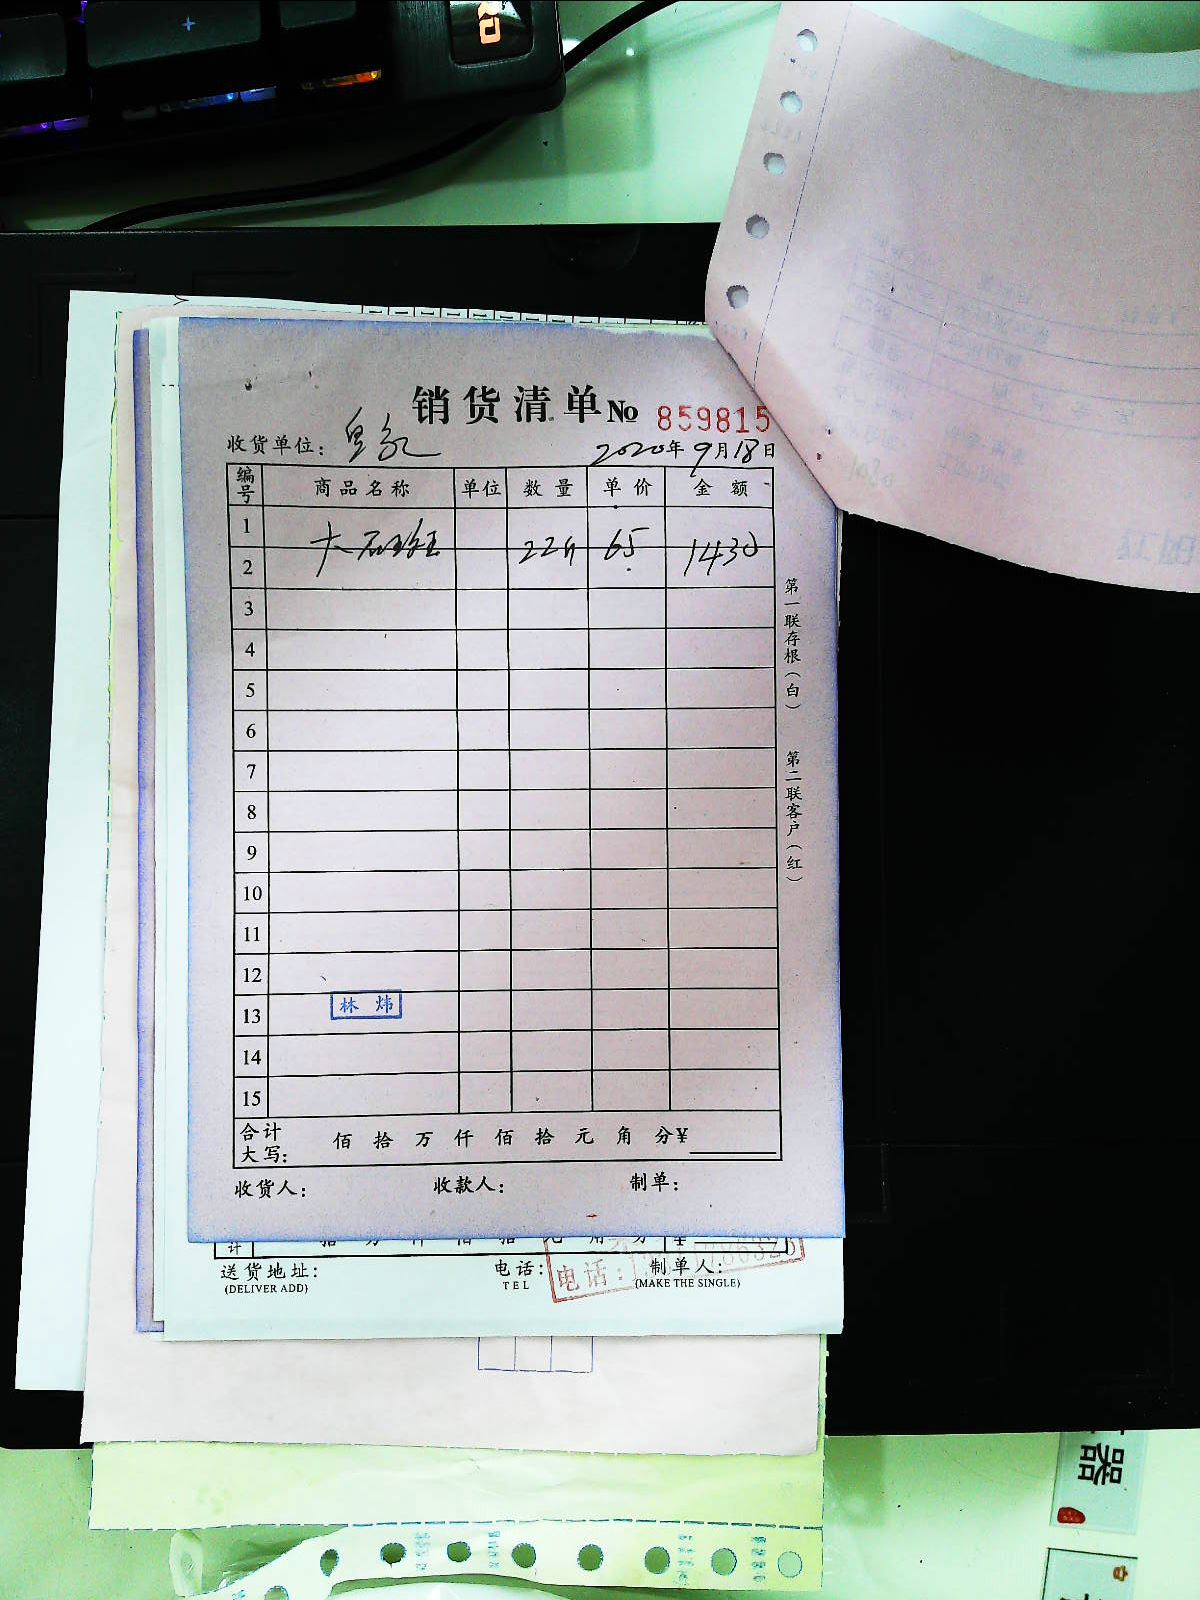 销货清单 No 859815
收货单位: 皇家 2020年9月18日
编号 商品名称 单位 数量 单价 金额
1 大石斑 22斤 65 1430
2
3
4
5
6
7
8
9
10
11
12
13 林炜
14
15
合计大写: 佰 拾 万 仟 佰 拾 元 角 分 ¥
收货人: 收款人: 制单:
第一联存根(白) 第二联客户(红)
计 拾 万 仟 佰 拾 元 角 分
送货地址: 电话: 制单人:
(DELIVER ADD) TEL (MAKE THE SINGLE)
电话:
器